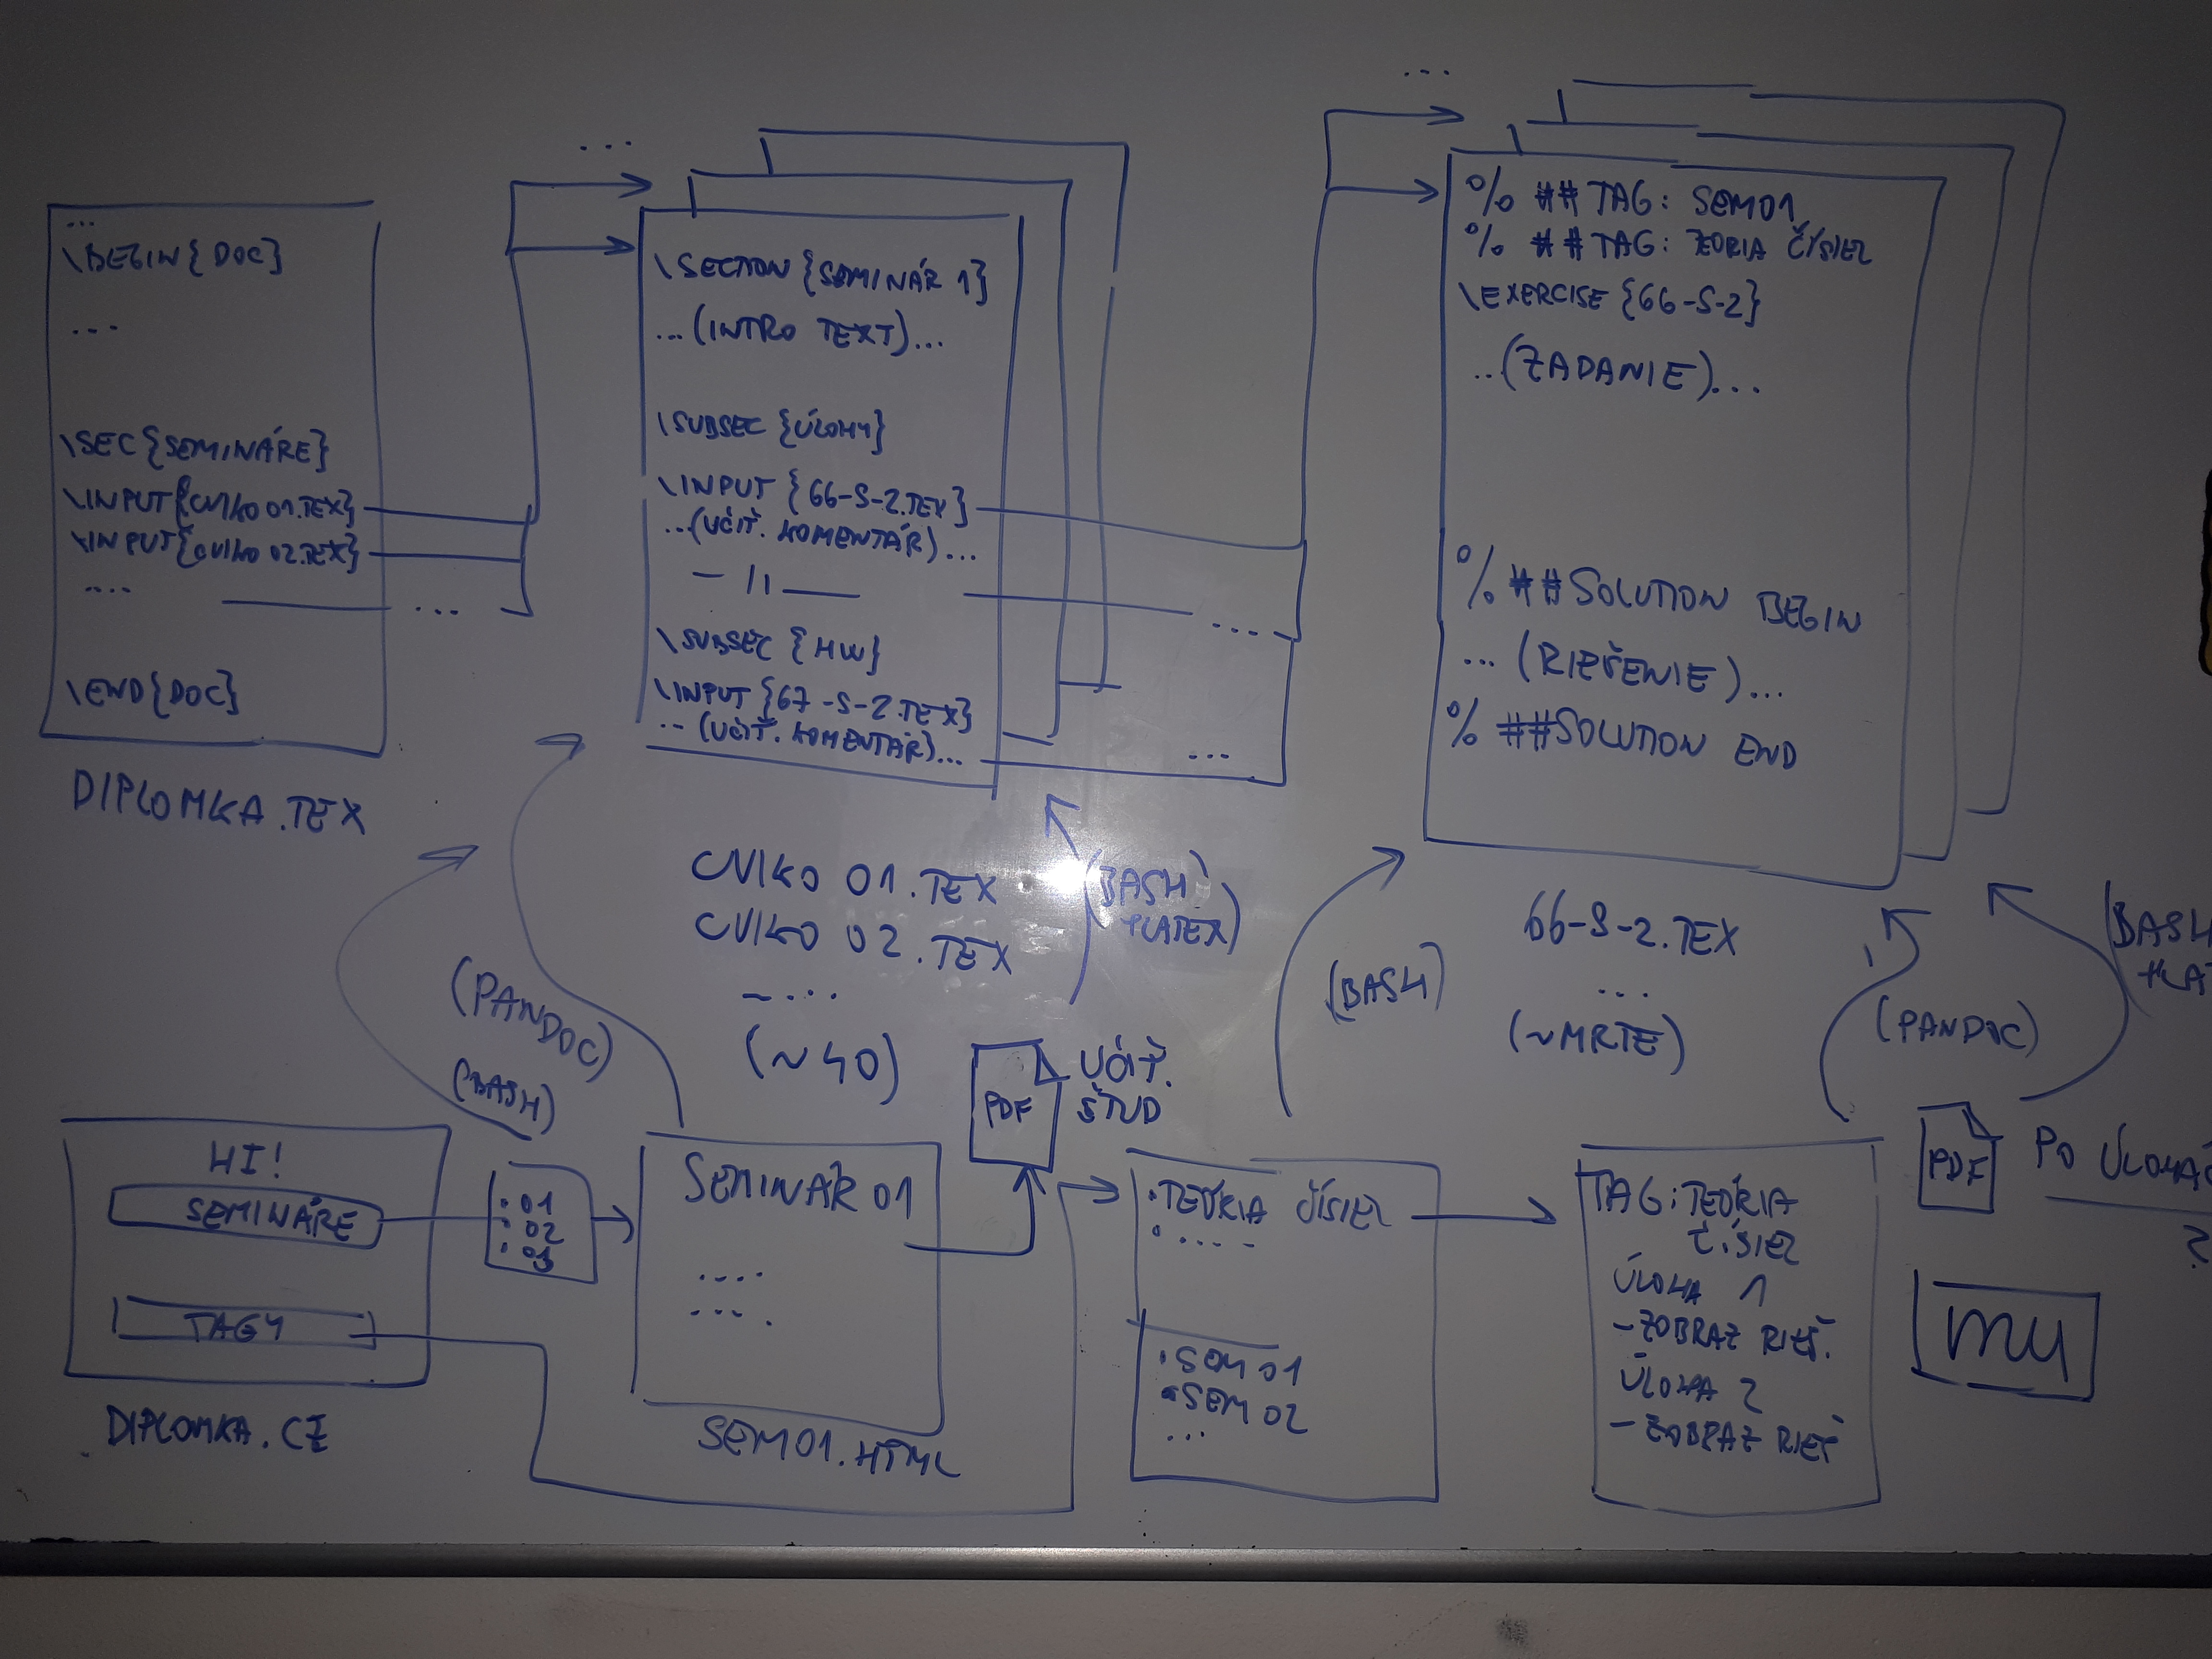 ...
\BEGIN{DOC}
...
\SEC{SEMINÁRE}
\INPUT{CVIKO 01.TEX}
\INPUT{CVIKO 02.TEX}
....
...
\END{DOC}
DIPLOMKA.TEX
...
\SECTION{SEMINÁR 1}
...(INTRO TEXT)...
\SUBSEC{ÚLOHY}
\INPUT{66-S-2.TEX}
...(UČIT. KOMENTÁR)...
— 11 —
....
\SUBSEC{HW}
\INPUT{67-S-2.TEX}
...(UČIT. KOMENTÁR)...
...
CVIKO 01.TEX
CVIKO 02.TEX
....
(~40)
...
% ## TAG: SEM01
% ## TAG: TEORIA ČÍSIEL
\EXERCISE{66-S-2}
...(ZADANIE)...
% ##SOLUTION BEGIN
... (RIEŠENIE)...
% ##SOLUTION END
66-S-2.TEX
...
(~MRTE)
(PANDOC)
(BASH)
(BASH
+LATEX)
(BASH)
(PANDOC)
(BASH
HI!
SEMINÁRE
TAGY
DIPLOMKA.CZ
• 01
• 02
• 03
SEMINÁR 01
....
....
SEM01.HTML
PDF
UČIT.
ŠTUD
• TEÓRIA ČÍSIEL
• ....
• SEM 01
• SEM 02
...
TAG: TEÓRIA
ČÍSIEL
ÚLOHA 1
- ZOBRAZ RIEŠ.
ÚLOHA 2
- ZOBRAZ RIEŠ
PDF
PO
?